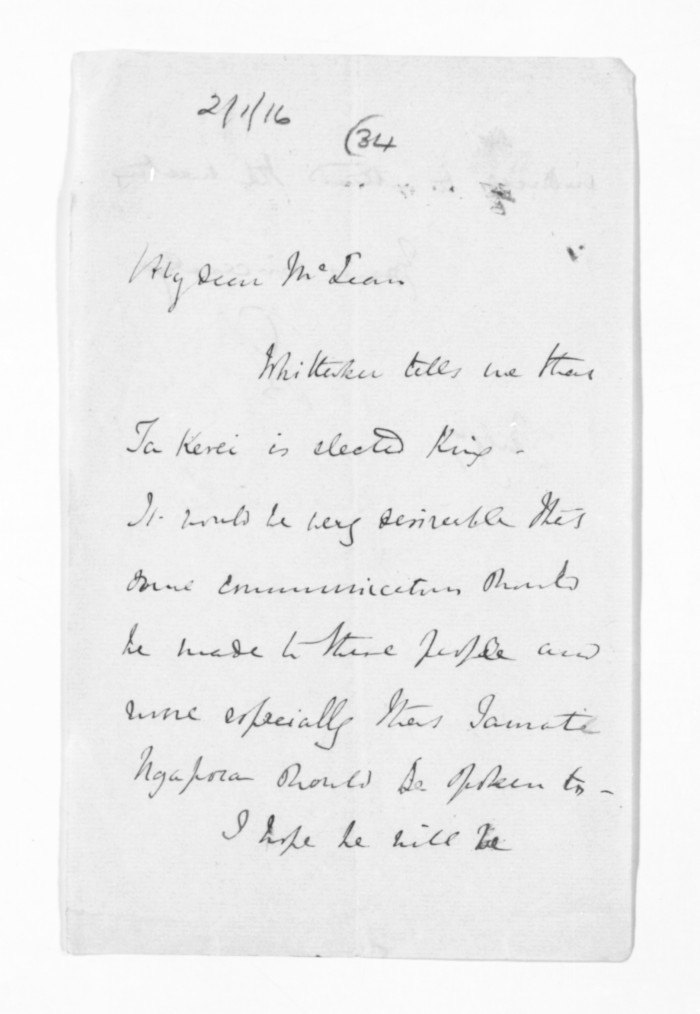 2/1/16
(34
My dear McLean
Whitaker tells me that
Ta Kerei is elected King -
It would be very desireable that
some communication should
be made to these people and
more especially that Tamati
Ngapora should be spoken to -
I hope he will be